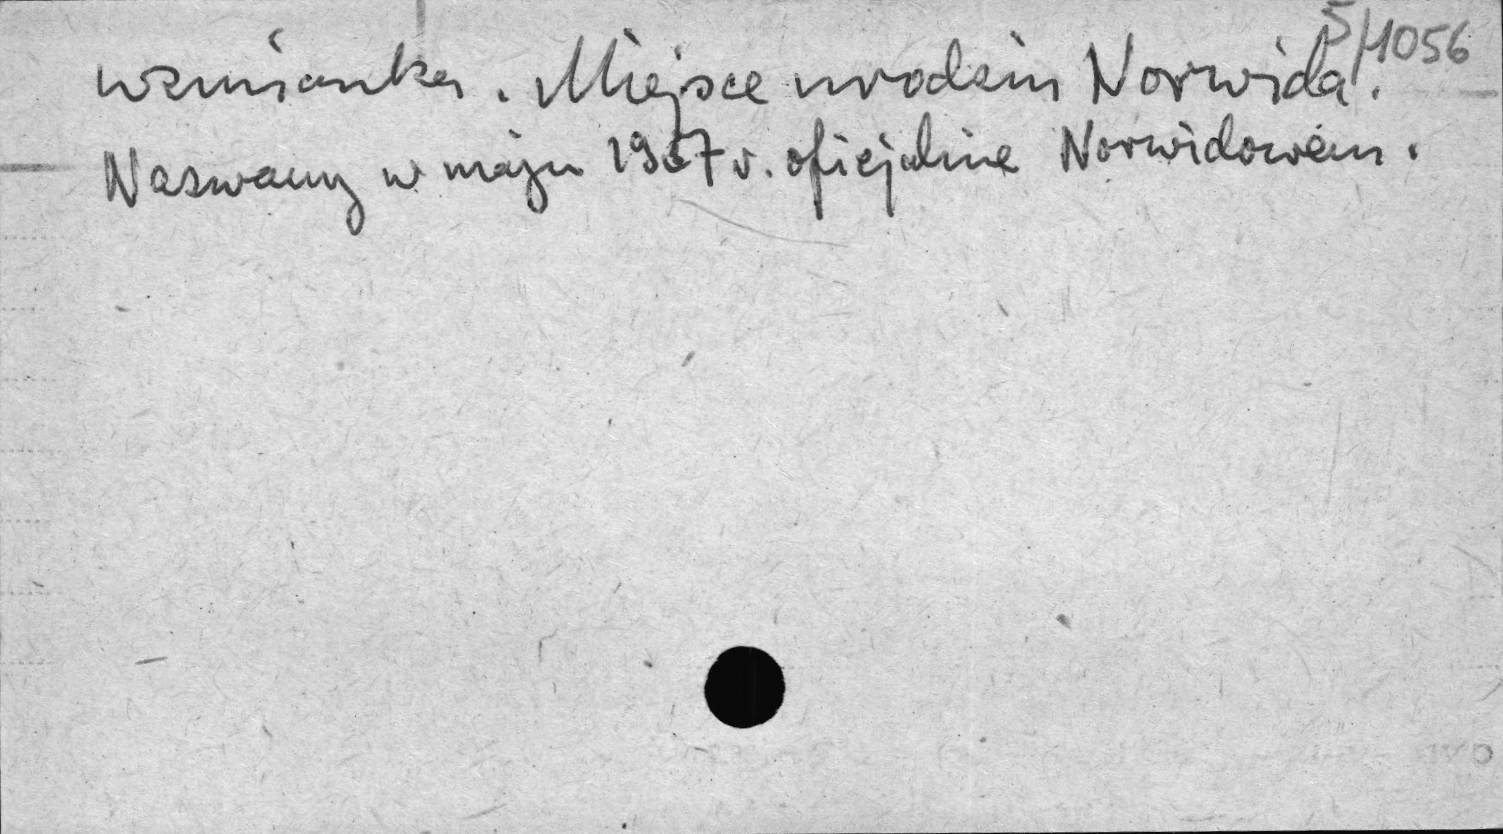 5/1056
wzmianka. Miejsce urodzin Norwida.
Nazwany w maju 1957 r. oficjalnie Norwidowem.